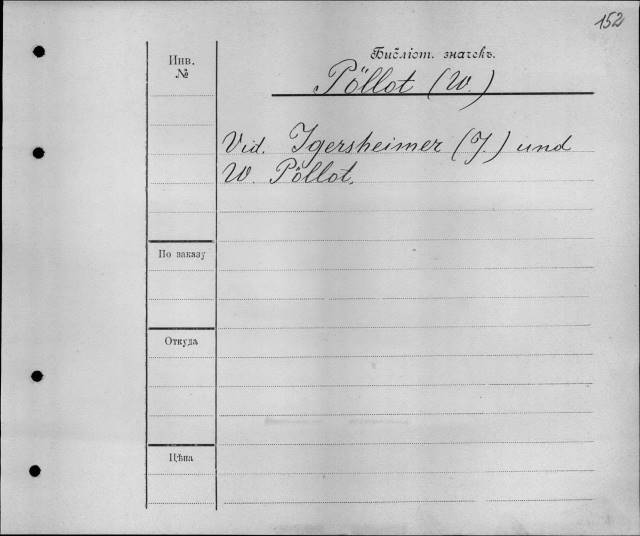 152
Библіот. значекъ.
Инв.
№
Pöllot (W.)
Vid. Igersheimer (J.) und
W. Pöllot.
По заказу
Откуда
Цѣна